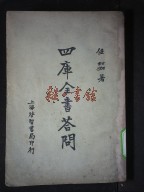 任 著
四庫全書答問
上海啓智書局印行